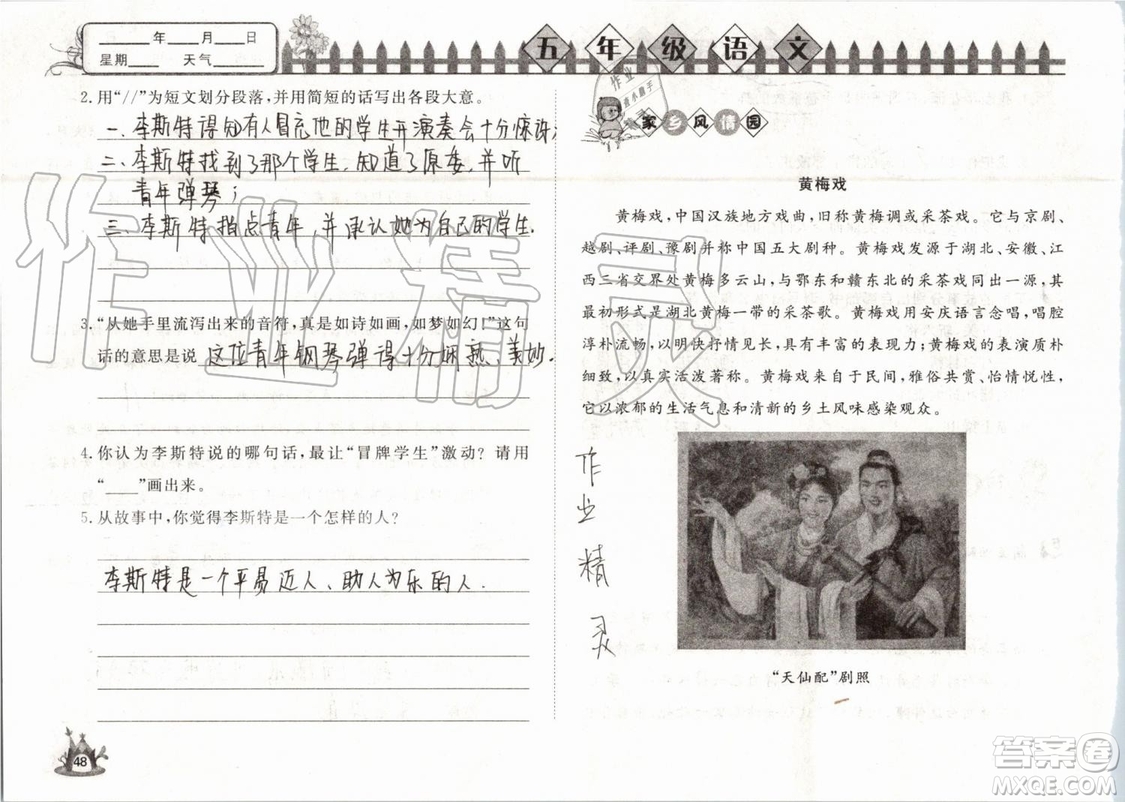 ____年____月____日
星期____ 天气______
五年级语文
2.用“//”为短文划分段落，并用简短的话写出各段大意。
一.李斯特得知有人冒充他的学生开演奏会十分惊讶;
二.李斯特找到了那个学生.知道了原委.并听
青年弹琴;
三.李斯特指点青年，并承认她为自己的学生.
3.“从她手里流泻出来的音符，真是如诗如画，如梦如幻！”这句
话的意思是说 这位青年钢琴弹得十分娴熟、美妙.
4.你认为李斯特说的哪句话，最让“冒牌学生”激动？请用
“____”画出来。
5.从故事中，你觉得李斯特是一个怎样的人？
李斯特是一个平易近人、助人为乐的人.
48
作业
家乡风情园
黄梅戏
黄梅戏，中国汉族地方戏曲，旧称黄梅调或采茶戏。它与京剧、
越剧、评剧、豫剧并称中国五大剧种。黄梅戏发源于湖北、安徽、江
西三省交界处黄梅多云山，与鄂东和赣东北的采茶戏同出一源，其
最初形式是湖北黄梅一带的采茶歌。黄梅戏用安庆语言念唱，唱腔
淳朴流畅，以明快抒情见长，具有丰富的表现力；黄梅戏的表演质朴
细致，以真实活泼著称。黄梅戏来自于民间，雅俗共赏、怡情悦性，
它以浓郁的生活气息和清新的乡土风味感染观众。
作业精灵
“天仙配”剧照
作业精灵
答案圈
MXQE.COM